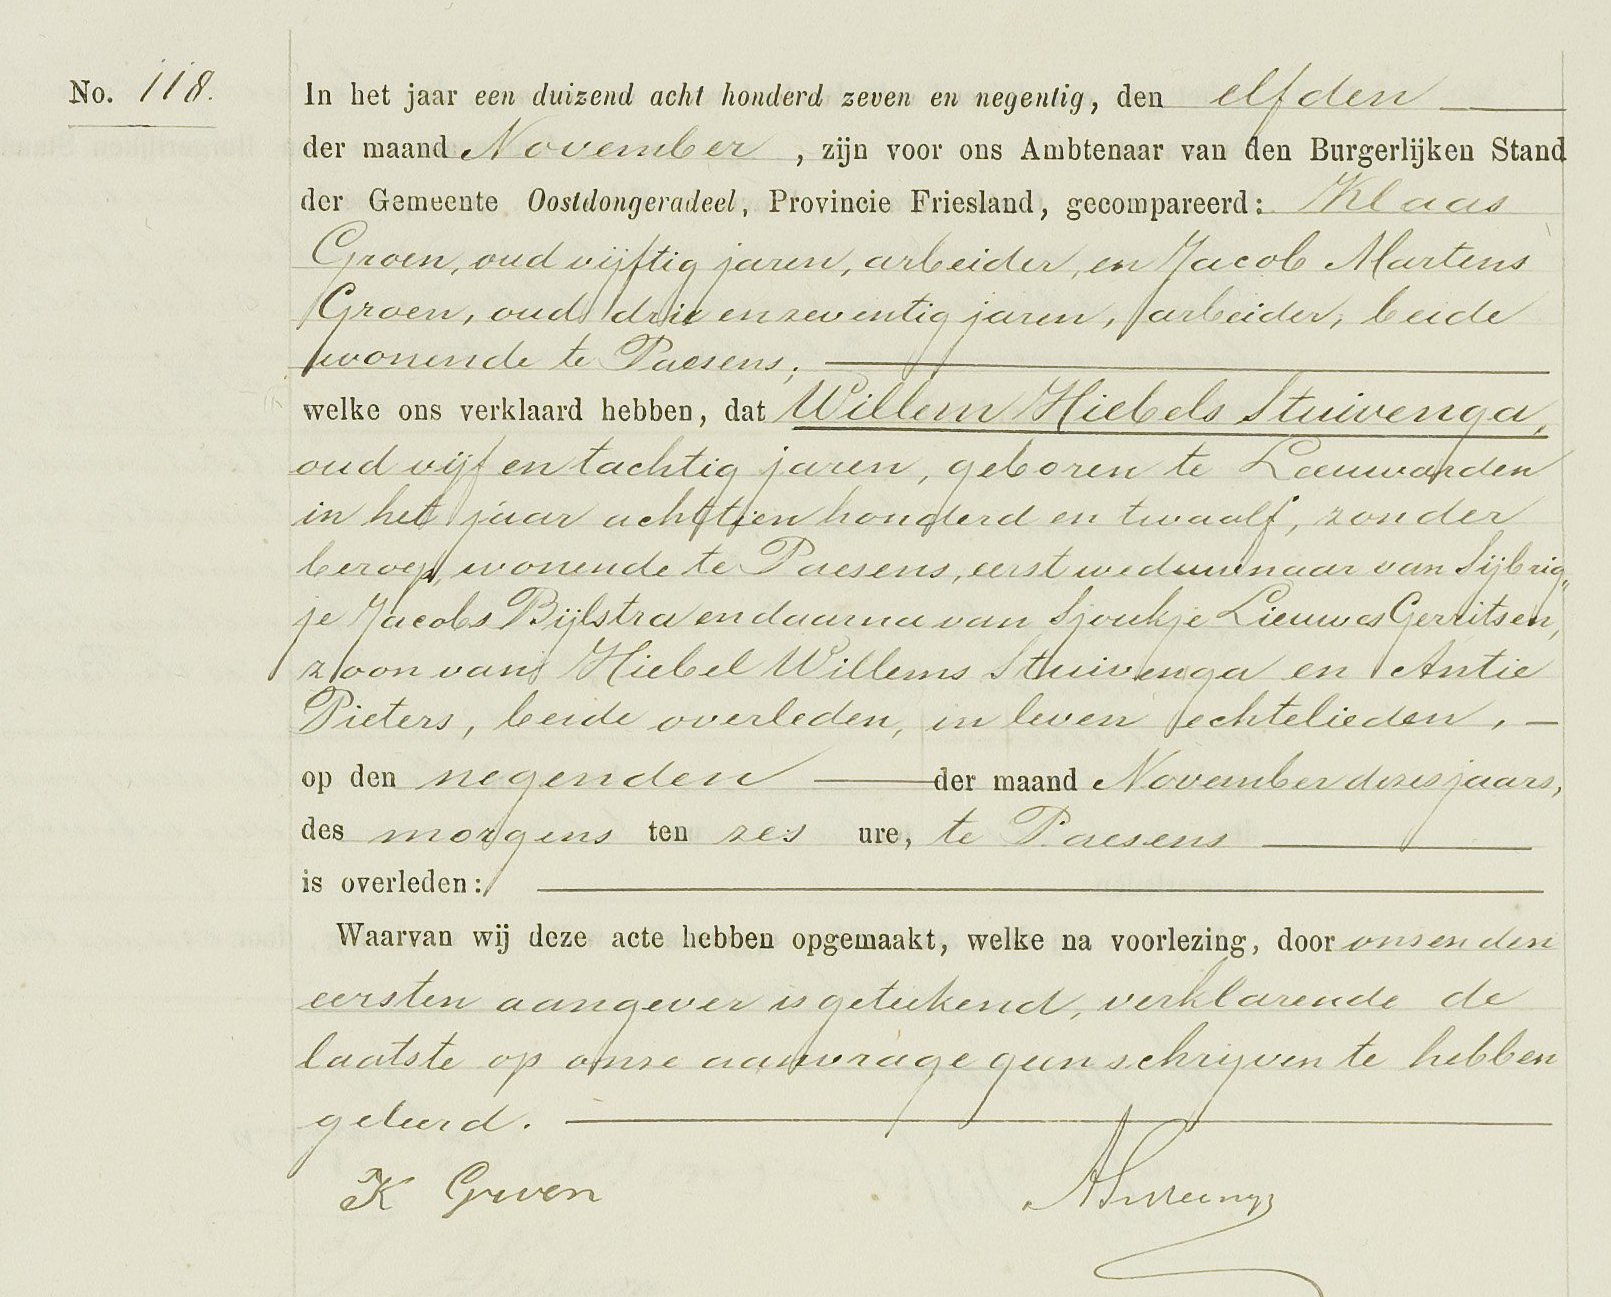 No. 118.
In het jaar een duizend acht honderd zeven en negentig, den elfden
der maand November, zijn voor ons Ambtenaar van den Burgerlijken Stand
der Gemeente Oostdongeradeel, Provincie Friesland, gecompareerd: Klaas
Groen, oud vijftig jaren, arbeider, en Jacob Martens
Groen, oud drie en zeventig jaren, arbeider, beide
wonende te Paesens,
welke ons verklaard hebben, dat Willem Hiebels Stuivenga,
oud vijf en tachtig jaren, geboren te Leeuwarden
in het jaar achttien honderd en twaalf, zonder
beroep, wonende te Paesens, eerst weduwnaar van Sijbrig„
je Jacobs Bijlstra en daarna van Sjoukje Lieuwes Gerritsen,
zoon van Hiebel Willems Stuivenga en Antie
Pieters, beide overleden, in leven echtelieden, —
op den negenden der maand November dezes jaars,
des morgens ten zes ure, te Paesens
is overleden:
Waarvan wij deze acte hebben opgemaakt, welke na voorlezing, door ons en den
eersten aangever is geteekend, verklarende de
laatste op onze aanvrage geen schrijven te hebben
geleerd.
K Groen